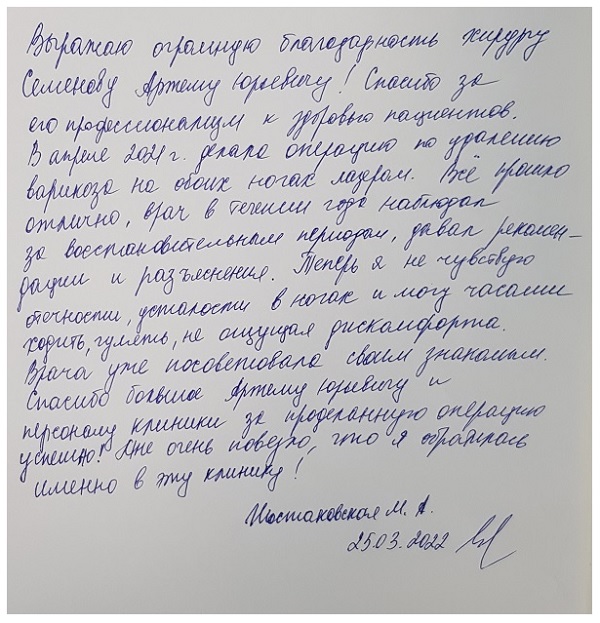 Выражаю огромную благодарность хирургу
Семенову Артему Юрьевичу! Спасибо за
его профессионализм к здоровью пациентов.
В апреле 2021 г. делала операцию по удалению
варикоза на обоих ногах лазером. Всё прошло
отлично, врач в течении года наблюдал
за восстановительным периодом, давал рекомен-
дации и разъяснения. Теперь я не чувствую
отечности, усталости в ногах и могу часами
ходить, гулять, не ощущая дискомфорта.
Врача уже посоветовала своим знакомым.
Спасибо большое Артему Юрьевичу и
персоналу клиники за проделанную операцию
успешно! Мне очень повезло, что я обратилась
именно в эту клинику!
Шостаковская М. А.
25.03.2022